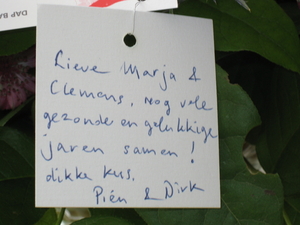 DAP BA
Lieve Marja &
Clemens, nog vele
gezonde en gelukkige
jaren samen!
dikke kus.
Piên & Dirk